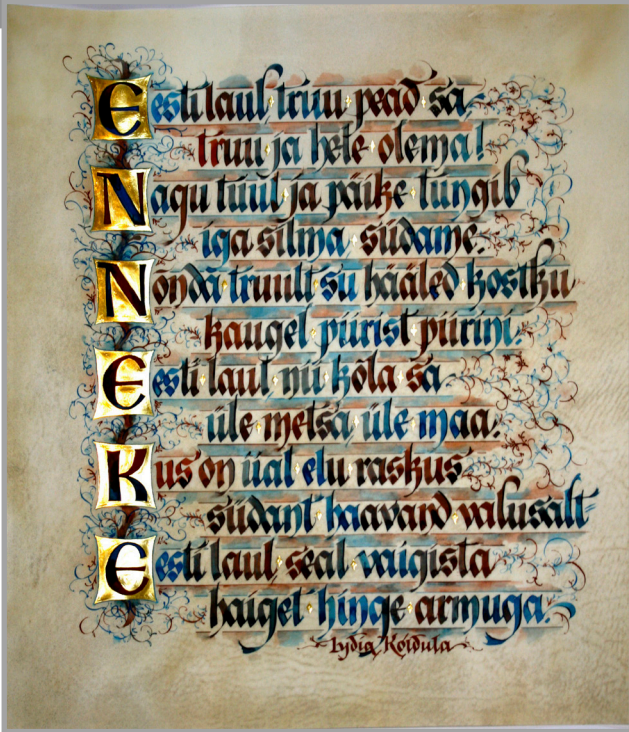 Eesti laul, truu pead sa
truu ja hele olema!
Nagu tuul ja päike tungib
iga silma, südame.
Nõnda truult su hääled kostku
kaugel piirist piirini.
Eesti laul nii kõla sa
üle metsa, üle maa.
Kus on iial elu raskus
südant haavand valusalt
Eesti laul, seal vaigista
haigel hinge armuga.
Lydia Koidula